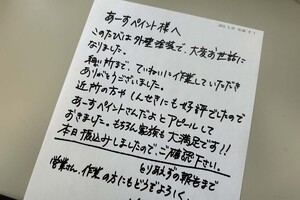 あーすペイント様へ
このたびは外壁塗装で、大変お世話に
なりました。
細い所まで、ていねいに作業していただき
ありがとうございました。
近所の方や しんせきにも好評でしたので
あーすペイントさんだよとアピールして
おきました。もちろん家族も大満足です!!
本日振込みしましたので、ご確認下さい。
とりあえずの報告まで
営業さん、作業の方にもどうぞよろしく、